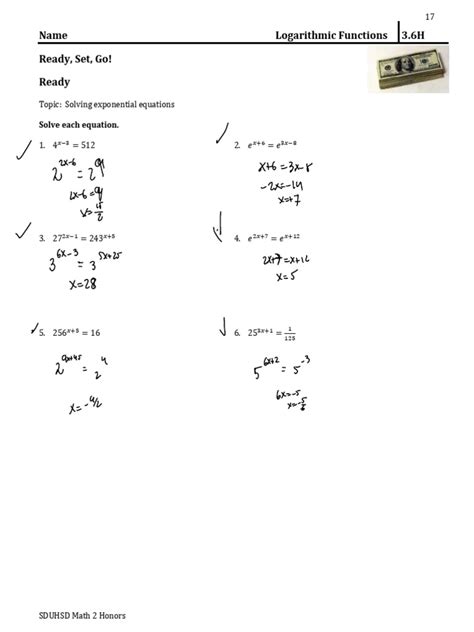 17
Name Logarithmic Functions 3.6H
Ready, Set, Go!
Ready
Topic: Solving exponential equations
Solve each equation.
1. 4^{x-3} = 512 2. e^{x+6} = e^{3x-8}
2^{2x-6} = 2^{9} x+6 = 3x-8
2x-6=9 -2x=-14
x=15/2 x=+7
3. 27^{2x-1} = 243^{x+5} 4. e^{2x+7} = e^{x+12}
3^{6x-3} = 3^{5x+25} 2x+7=x+12
x=28 x=5
5. 256^{x+5} = 16 6. 25^{3x+1} = 1/125
= 2^{4} 5^{6x+2} = 5^{-3}
x=-9/2 6x=-5
x=-5/6
SDUHSD Math 2 Honors